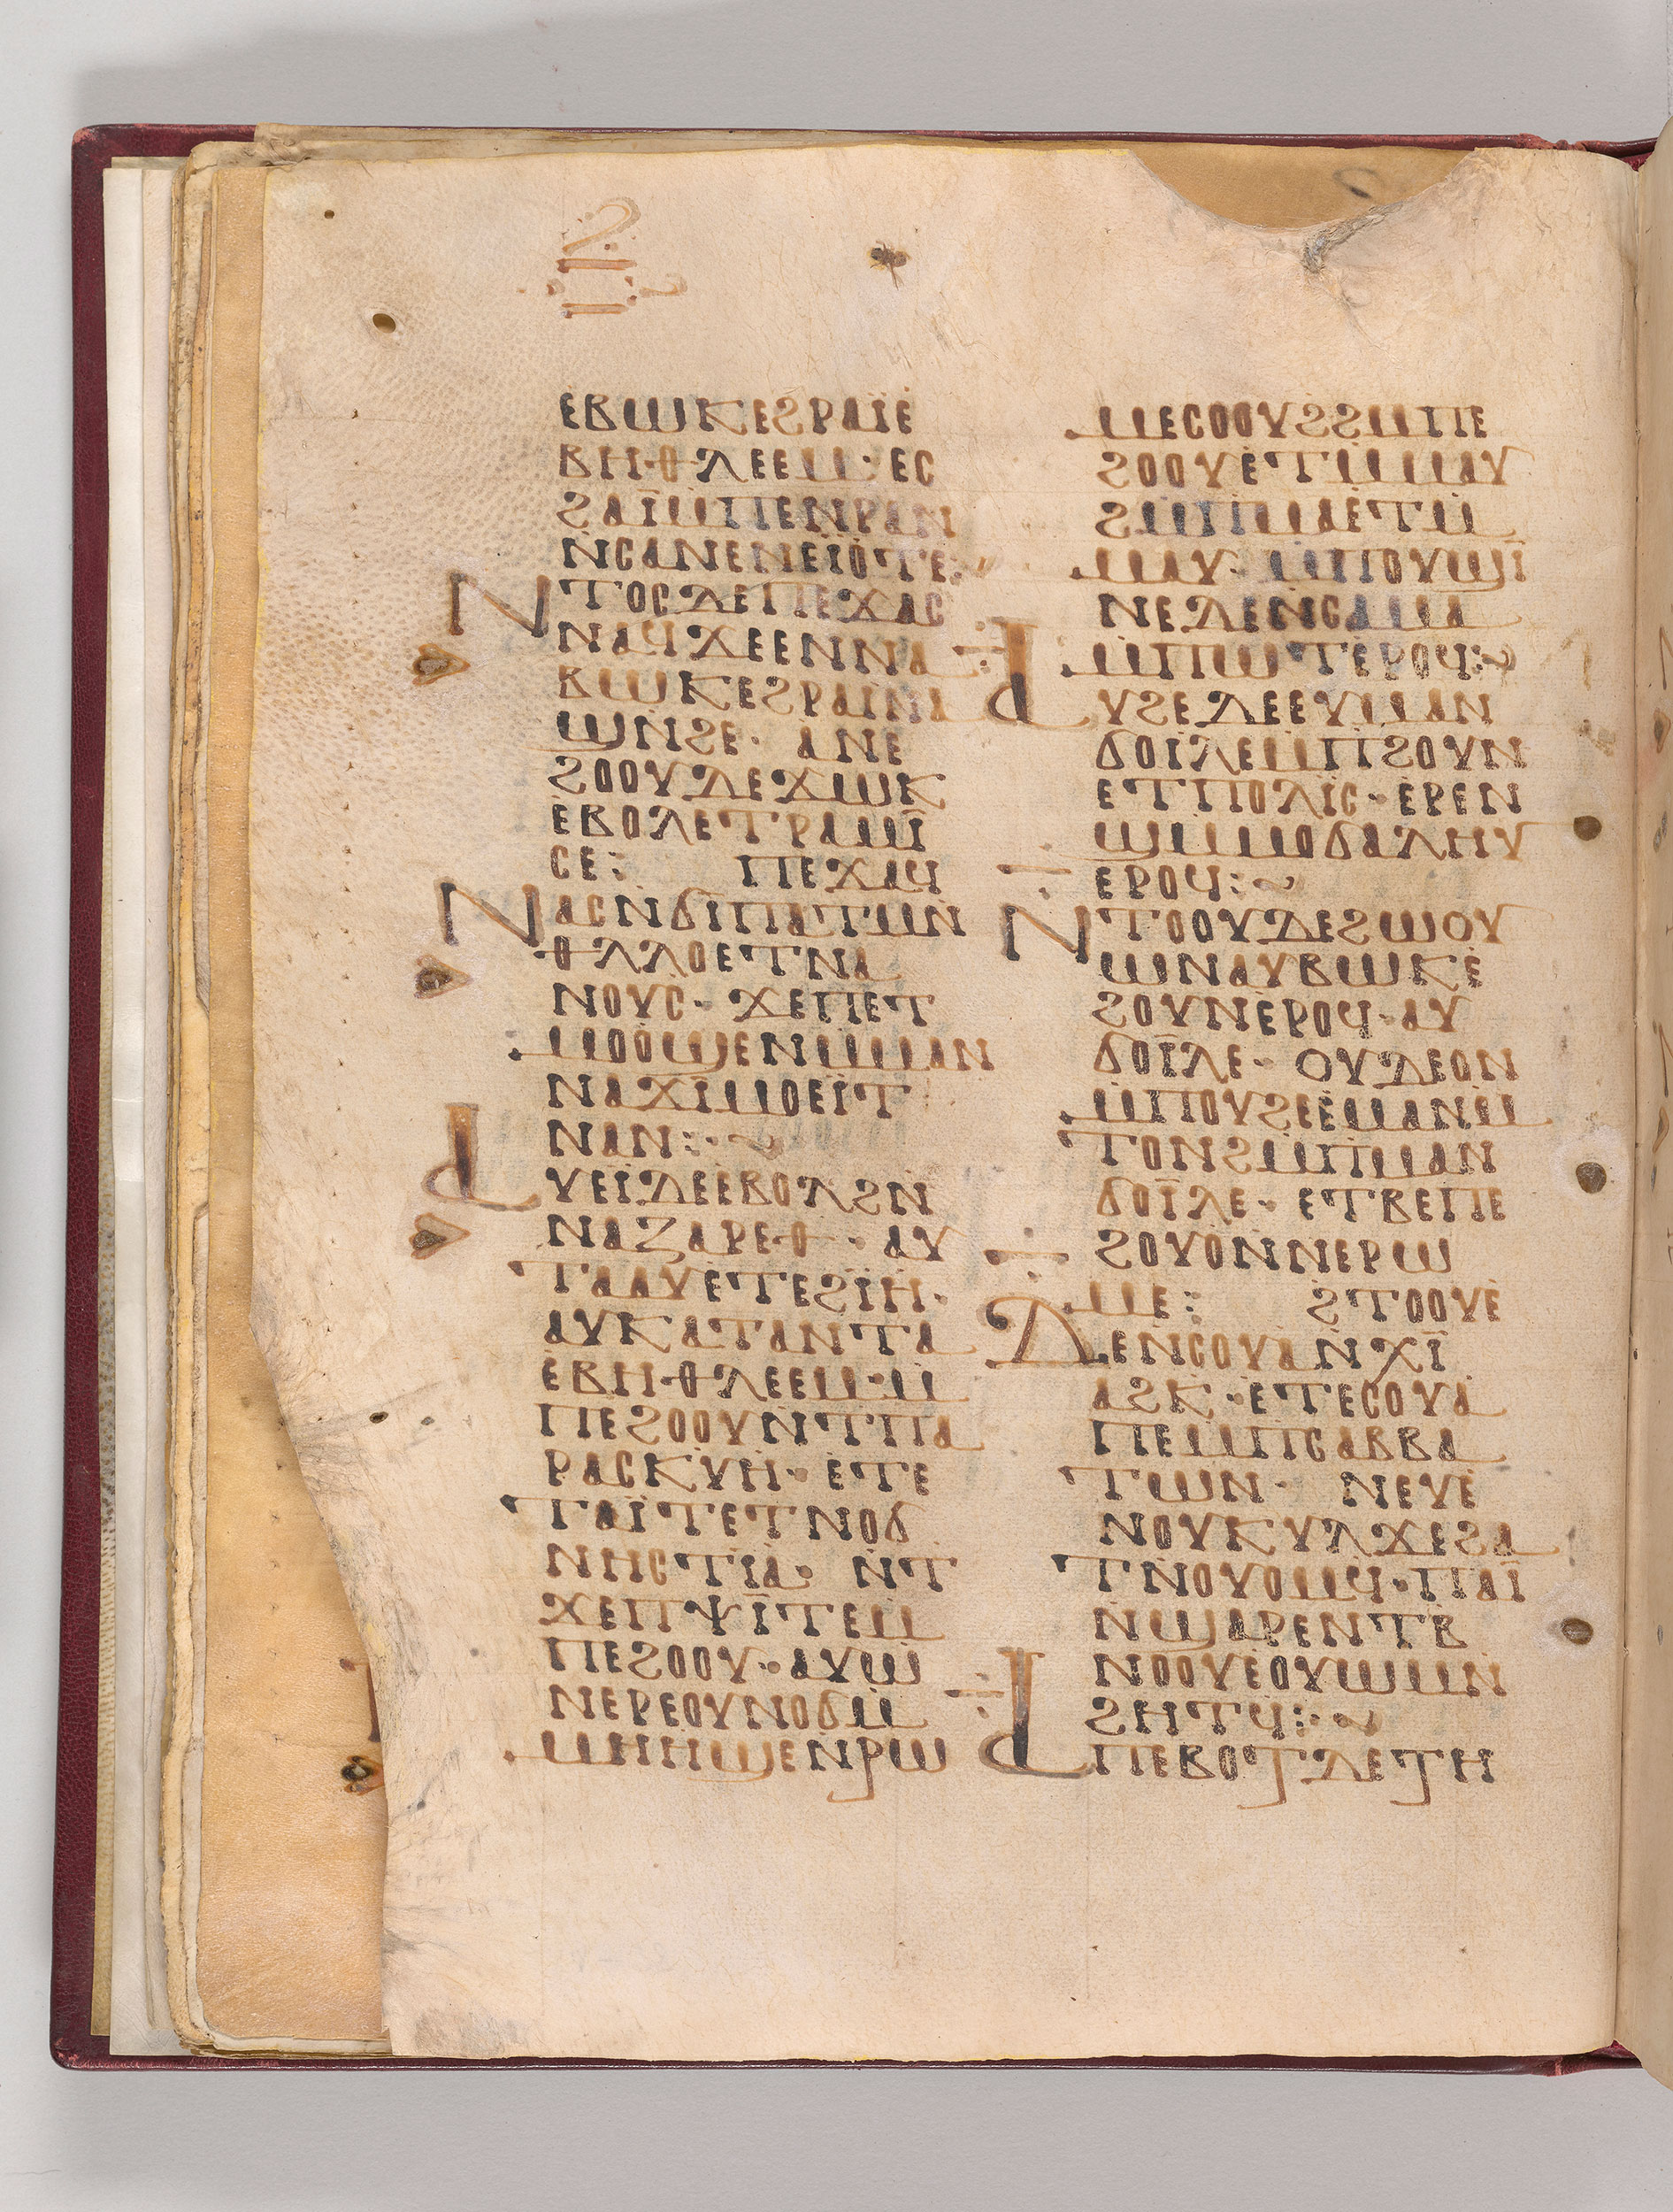 ⲉⲃⲱⲕⲉϩⲣⲁⲓ̈ⲉ
ⲃⲏⲑⲗⲉⲉⲙ· ⲉⲥ
ϩⲁⲓ̈ⲙ̄ⲡⲉⲛⲣⲁⲛ
ⲛ̇ⲥⲁⲛⲉⲛⲉⲓ̈ⲟⲧⲉ:
ⲛⲧⲟⲥⲇⲉⲡⲉϫⲁⲥ
ⲛⲁϥϫⲉⲉⲛⲛⲁ
ⲃⲱⲕⲉϩⲣⲁⲓ̈ⲛⲁ
ϣⲛϩⲉ· ⲁⲛⲉ
ϩⲟⲟⲩⲇⲉϫⲱⲕ
ⲉ̇ⲃⲟⲗⲉⲧⲣⲁⲙⲓ̈
ⲥⲉ: ⲡⲉϫⲁϥ
ⲛⲁⲥⲛ̇ϭⲓⲡⲁⲧⲱⲛ
ⲑⲗⲗⲟⲉⲧⲛⲁ
ⲛⲟⲩⲥ· ϫⲉⲡⲉⲧ
ⲙⲟⲟϣⲉⲛⲙ̇ⲙⲁⲛ
ⲛⲁϫⲓ̈ⲙⲟⲉⲓ̈ⲧ
ⲛⲁⲛ:·
ⲁⲩⲉⲓ̈ⲇⲉⲉⲃⲟⲗϩⲛ̇
ⲛⲁⲍⲁⲣⲉⲑ· ⲁⲩ
ⲧⲁⲁⲩⲉ̇ⲧⲉϩⲓ̈ⲏ·
ⲁⲩⲕⲁⲧⲁⲛⲧⲁ
ⲉ̇ⲃⲏⲑⲗⲉⲉⲙ·ⲙ̇
ⲡⲉϩⲟⲟⲩⲛ̇ⲧⲡⲁ
ⲣⲁⲥⲕⲩⲏ· ⲉ̇ⲧⲉ
ⲧⲁⲓ̈ⲧⲉⲧⲛⲟϭ
ⲛⲏⲥⲧⲓ̈ⲁ· ⲛ̇ⲧ
ϫⲉⲡⲯⲓ̈ⲧⲉⲙ̇
ⲡⲉϩⲟⲟⲩ·ⲁⲩⲱ
ⲛⲉⲣⲉⲟⲩⲛⲟϭⲙ̇
ⲙⲏⲏϣⲉⲛ̇ⲣⲱ
ⲙⲉⲥⲟⲟⲩϩϩⲙⲡⲉ
ϩⲟⲟⲩⲉ̇ⲧⲙ̇ⲙⲁⲩ
ϩⲙ̇ⲡⲙⲁⲉ̇ⲧⲙ̇
ⲙⲁⲩ· ⲙ̇ⲡⲟⲩϣⲓ̈
ⲛⲉⲇⲉⲛ̇ⲥⲁⲙⲁ
ⲙ̇ⲡⲱⲧⲉⲣⲟϥ:
ⲁⲩϩⲉⲇⲉⲉⲩⲙⲁⲛ
ϭⲟⲓ̈ⲗⲉⲙ̇ⲡϩⲟⲩⲛ
ⲉⲧⲡⲟⲗⲓ̈ⲥ·ⲉ̇ⲣⲉⲛ
ϣⲙ̇ⲙⲟϭⲁⲗⲏⲩ
ⲉⲣⲟϥ:
ⲛⲧⲟⲟⲩⲇⲉϩⲱⲟⲩ
ⲱⲛⲁⲩⲃⲱⲕⲉ̇
ϩⲟⲩⲛⲉⲣⲟϥ·ⲁⲩ
ϭⲟⲓ̈ⲗⲉ· ⲟⲩⲇⲉⲟⲛ
ⲙ̇ⲡⲟⲩϩⲉⲉ̇ⲙⲁⲛⲙ̇
ⲧⲟⲛϩⲙ̇ⲡⲙⲁⲛ
ϭⲟⲓ̈ⲗⲉ· ⲉⲧⲃⲉⲡⲉ
ϩⲟⲩⲟ̇ⲛⲛⲉⲣⲱ
ⲙⲉ: ϩⲧⲟⲟⲩⲉ̇
ⲇⲉⲛⲥⲟⲩⲁ̇ⲛ̇ϫⲓ̈
ⲁϩⲕ·ⲉ̇ⲧⲉⲥⲟⲩⲁ̇
ⲡⲉⲙ̇ⲡⲥⲁⲃⲃⲁ
ⲧⲱⲛ· ⲛⲉⲩⲉ̇
ⲛⲟⲩⲕⲩⲗϫⲉϩⲁ
ⲧⲛ̇ⲟⲩⲟⲙϥ·ⲡⲁⲓ̈
ⲛ̇ϣⲁⲣⲉⲛⲧⲃ̇
ⲛⲟⲟⲩⲉⲟⲩⲱⲙⲛ̇
ϩⲏⲧϥ:·
ⲁⲡⲉⲃⲟⲧⲇⲉⲧⲏ